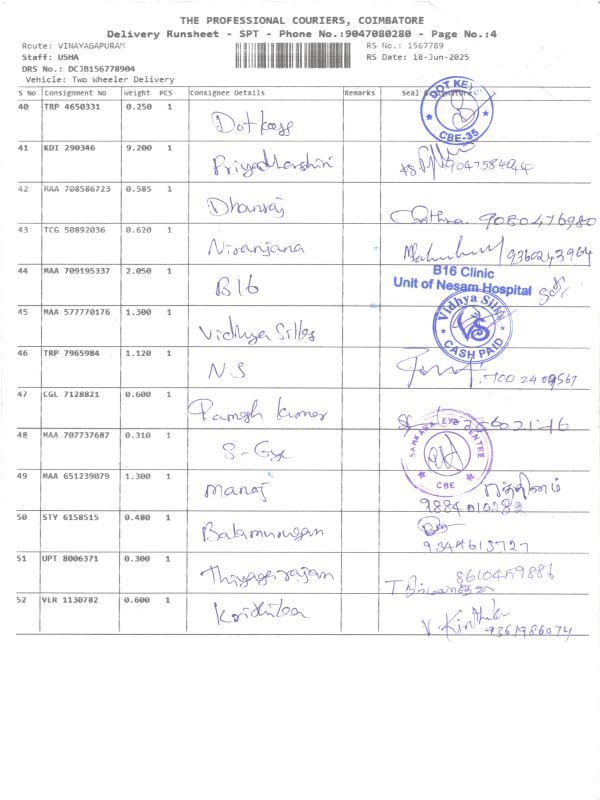 THE PROFESSIONAL COURIERS, COIMBATORE
Delivery Runsheet - SPT - Phone No.:9047080280 - Page No.:4
Route: VINAYAGAPURAM RS No.: 1567789
Staff: USHA RS Date: 18-Jun-2025
DRS No.: DCJB156778904
Vehicle: Two Wheeler Delivery
S No Consignment No Weight PCS Consignee Details Remarks Seal & Signature
40 TRP 4650331 0.250 1 Dot kays DOT KEY CBE-35
41 KDI 290346 9.200 1 Priyadharshini
42 MAA 708586723 0.585 1 Dhanraj 9080476980
43 TCG 50892036 0.620 1 Niranjana 9360243964
44 MAA 709195337 2.050 1 B16 B16 Clinic
Unit of Nesam Hospital
45 MAA 577770176 1.300 1 Vidhya Silks Vidhya Silks CASH PAID
46 TRP 7965984 1.120 1 N.S
47 CGL 7128821 0.600 1 Ramesh kumar
48 MAA 707737687 0.310 1 S-Eye SANKARA EYE CENTRE CBE
49 MAA 651239079 1.300 1 manoj
9884010282
50 STY 6158515 0.480 1 Balamurugan
9344613727
51 UPT 8006371 0.300 1 Thiyagarajan 8610459886
52 VLR 1130782 0.600 1 Kridhika V. Kirithika
9361986074